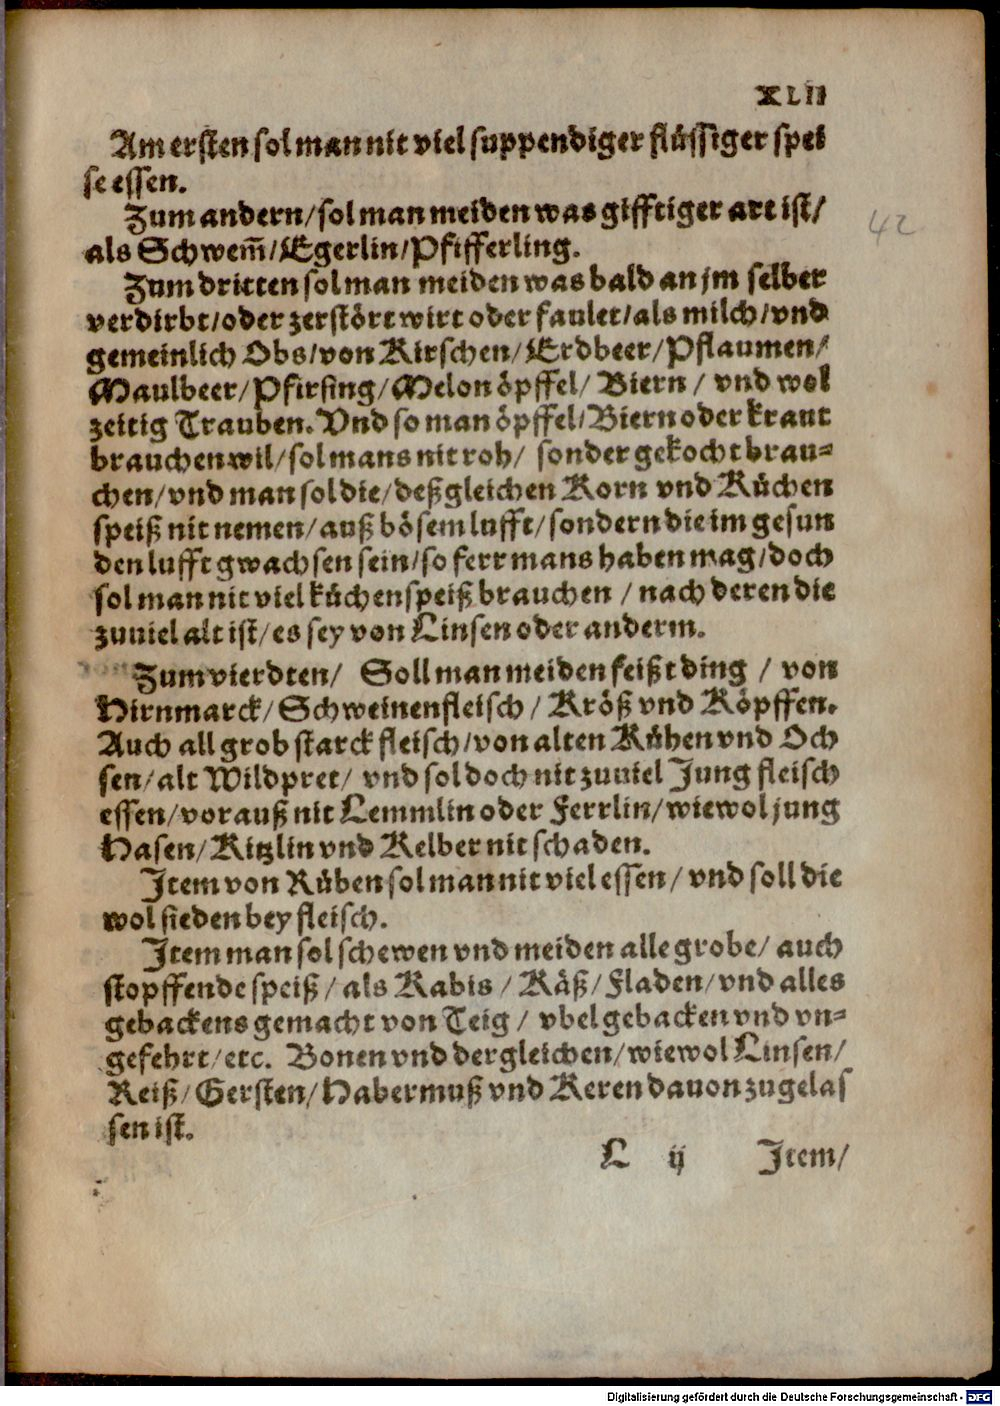 XLII
Am ersten sol man nit viel suppendiger flüssiger spei
se essen.
Zum andern/ sol man meiden was gifftiger art ist/
als Schwem̃/ Egerlin/ Pfifferling.
42
Zum dritten sol man meiden was bald an jm selber
verdirbt/ oder zerstört wirt oder faulet/ als milch/ vnd
gemeinlich Obs/ von Kirschen/ Erdbeer/ Pflaumen/
Maulbeer/ Pfirsing/ Melon öpffel/ Biern / vnd wol
zeitig Trauben. Vnd so man öpffel/ Biern oder kraut
brauchen wil/ sol mans nit roh/ sonder gekocht brau-
chen/ vnd man sol die/ deßgleichen Korn vnd Küchen
speiß nit nemen/ auß bösem lufft/ sondern die im gesun
den lufft gwachsen sein/ so ferr mans haben mag/ doch
sol man nit viel küchenspeiß brauchen / nach deren die
zuuiel alt ist/ es sey von Linsen oder anderm.
Zum vierdten/ Soll man meiden feißt ding / von
Hirnmarck/ Schweinenfleisch / Kröß vnd Köpffen.
Auch all grob starck fleisch/ von alten Kühen vnd Och
sen/ alt Wildpret/ vnd sol doch nit zuuiel Jung fleisch
essen/ vorauß nit Lemmlin oder Ferrlin/ wiewol jung
Hasen/ Kitzlin vnd Kelber nit schaden.
Item von Rüben sol man nit viel essen/ vnd soll die
wol sieden bey fleisch.
Item man sol schewen vnd meiden alle grobe/ auch
stopffende speiß/ als Kabis / Käß/ Fladen/ vnd alles
gebackens gemacht von Teig / vbel gebacken vnd vn-
gefehrt/ etc. Bonen vnd dergleichen/ wiewol Linsen/
Reiß/ Gersten/ Habermuß vnd Keren dauon zugelas
sen ist.
L ij Item/
Digitalisierung gefördert durch die Deutsche Forschungsgemeinschaft - DFG